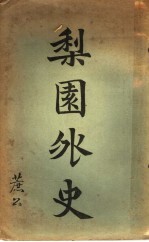 梨園外史
蔗公